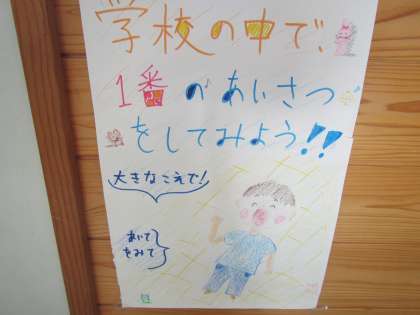 学校の中で、
1番のあいさつ
をしてみよう!!
大きなこえで!
あいて
をみて